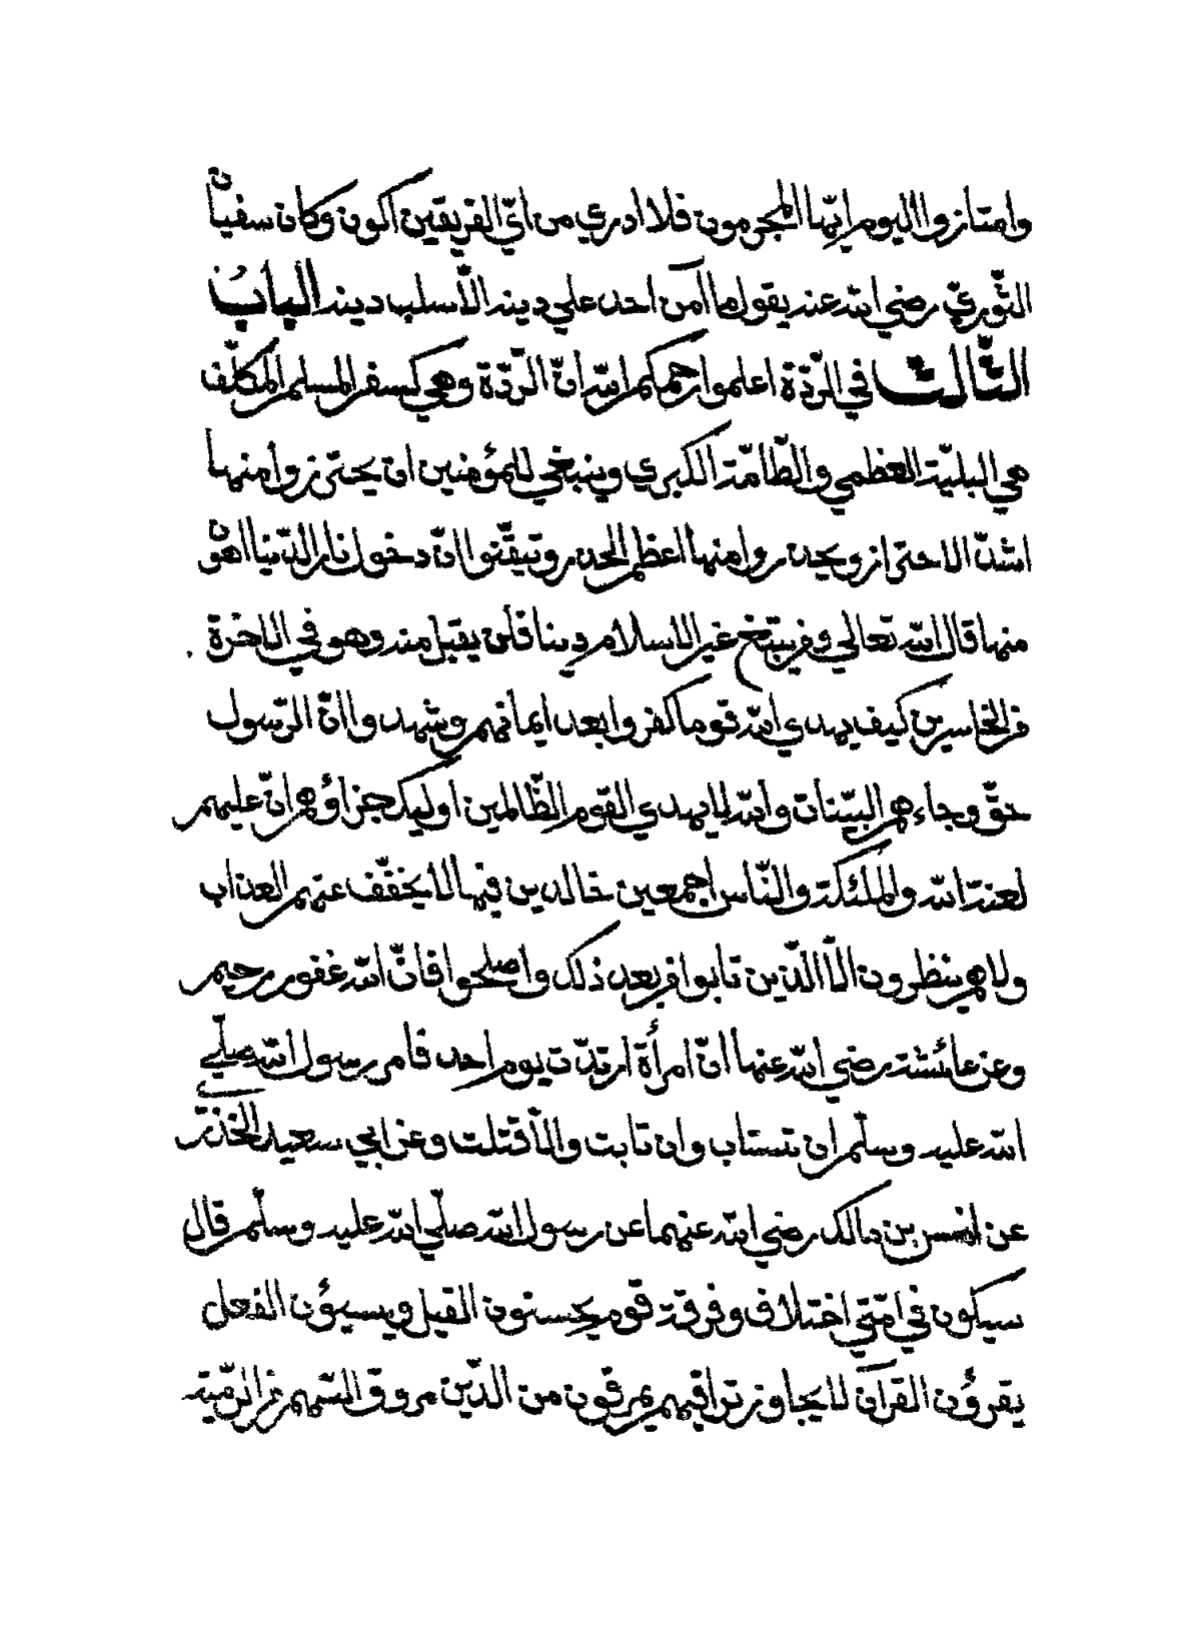 وامتازوا اليوم ايّها المجرمون فلا ادري من ايّ الفريقين اكون وكان سفيان
الثّوريّ رضي الله عنه يقول ما آمن احد علي دينه الّا سلب دينه الباب
الثّالث في الرّدّة اعلموا رحمكم الله انّ الرّدّة وهي كفر المسلم المكلّف
هي البليّة العظمي والطّامّة الكبري وينبغي للمؤمنين ان يحترزوا منها
اشدّ الاحتراز ويحذروا منها اعظم الحذر وتيقّنوا انّ دخول نار الدّنيا اهون
منها قال الله تعالي ومن يبتغ غير الاسلام دينا فلن يقبل منه وهو في الاخرة
من الخاسرين كيف يهدي الله قوما كفروا بعد ايمانهم وشهدوا انّ الرّسول
حقّ وجاءهم البيّنات والله لا يهدي القوم الظّالمين اوليك جزاؤهم انّ عليهم
لعنة الله والملئكة والنّاس اجمعين خالدين فيها لا يخفّف عنهم العذاب
ولا هم ينظرون الّا الّذين تابوا من بعد ذلك واصلحوا فانّ الله غفور رحيم
وعن عائشة رضي الله عنها انّ امرأة ارتدّت يوم احد فامر رسول الله صلّي
الله عليه وسلّم ان تستاب وان تابت والّا قتلت وعن ابي سعيد الخذريّ
عن انس بن مالك رضي الله عنهما عن رسول الله صلّي الله عليه وسلّم قال
سيكون في امّتي اختلاف وفرقة قوم يحسنون القيل ويسيؤن الفعل
يقرؤن القرآن لا يجاوز تراقيهم يمرقون من الدّين مروق السّهم من الرّميّة